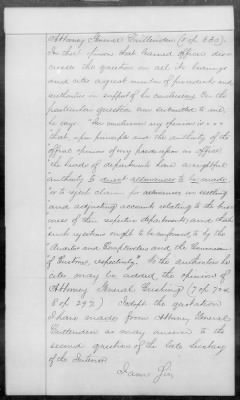 Attorney General Crittenden (5 op. 630).
In this opinion that learned officer dis-
cusses the question in all its bearings
and cites a great number of precedents and
authorities in support of his conclusions. On the
particular question now submitted to me
he says: "In conclusion my opinion is * * *
that upon principle and the authority of the
official opinions of my predecessors in office
the heads of departments have a rightful
authority to direct allowances to be made
or to reject claims for allowances in settling
and adjusting accounts relating to the busi-
ness of their respective departments, and that
such rejections ought to be conformed to by the
Auditors and Comptrollers and the Commissioner
of Customs, respectively." To the authorities he
cites may be added the opinions of
Attorney General Cushing (7 op. 724
8 op. 297.) I adopt the quotation
I have made from Attorney General
Crittenden as my answer to the
second question of the late Secretary
of the Interior.
I am Sir,